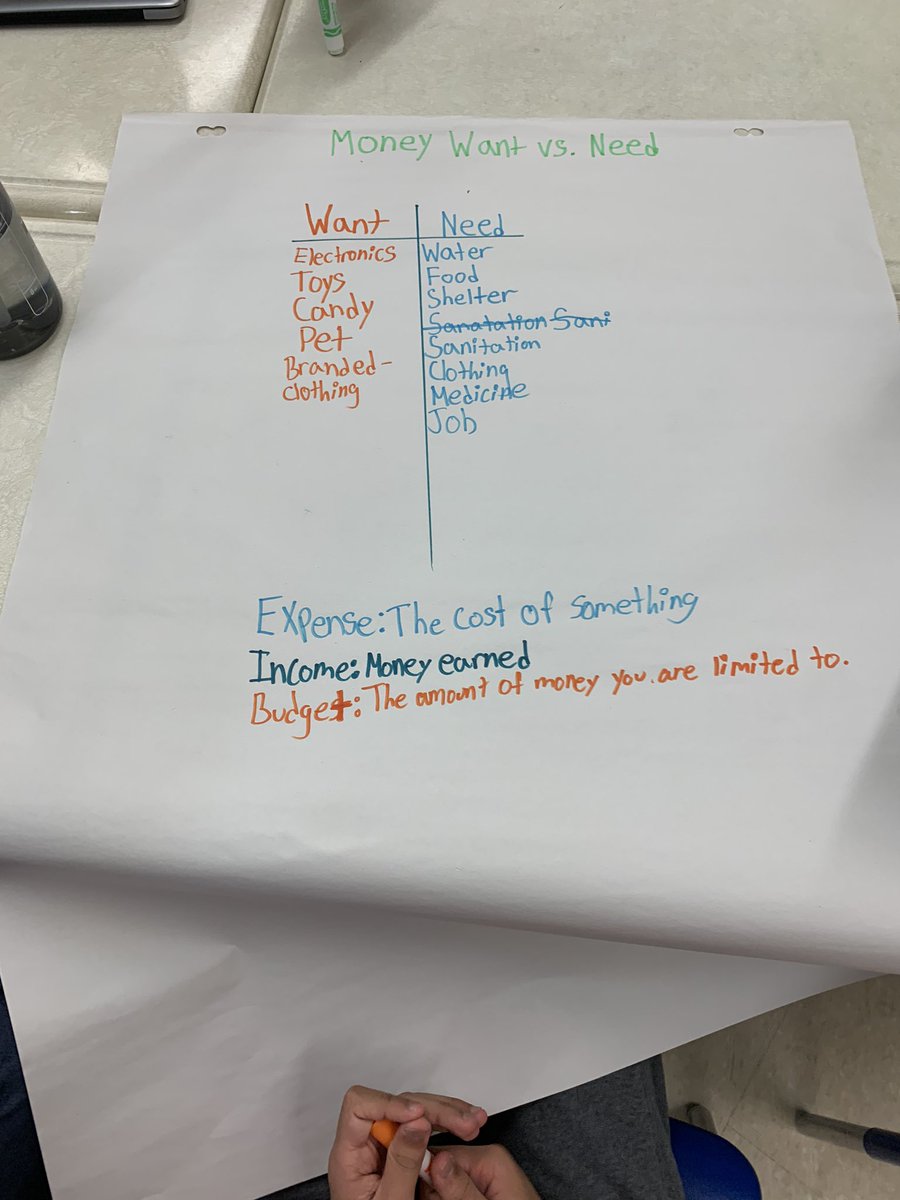 Money Want vs. Need
Want
Need
Electronics
Toys
Candy
Pet
Branded-
clothing
Water
Food
Shelter
Sanatation Sani
Sanitation
Clothing
Medicine
Job
Expense: The cost of something
Income: Money earned
Budget: The amount of money you are limited to.